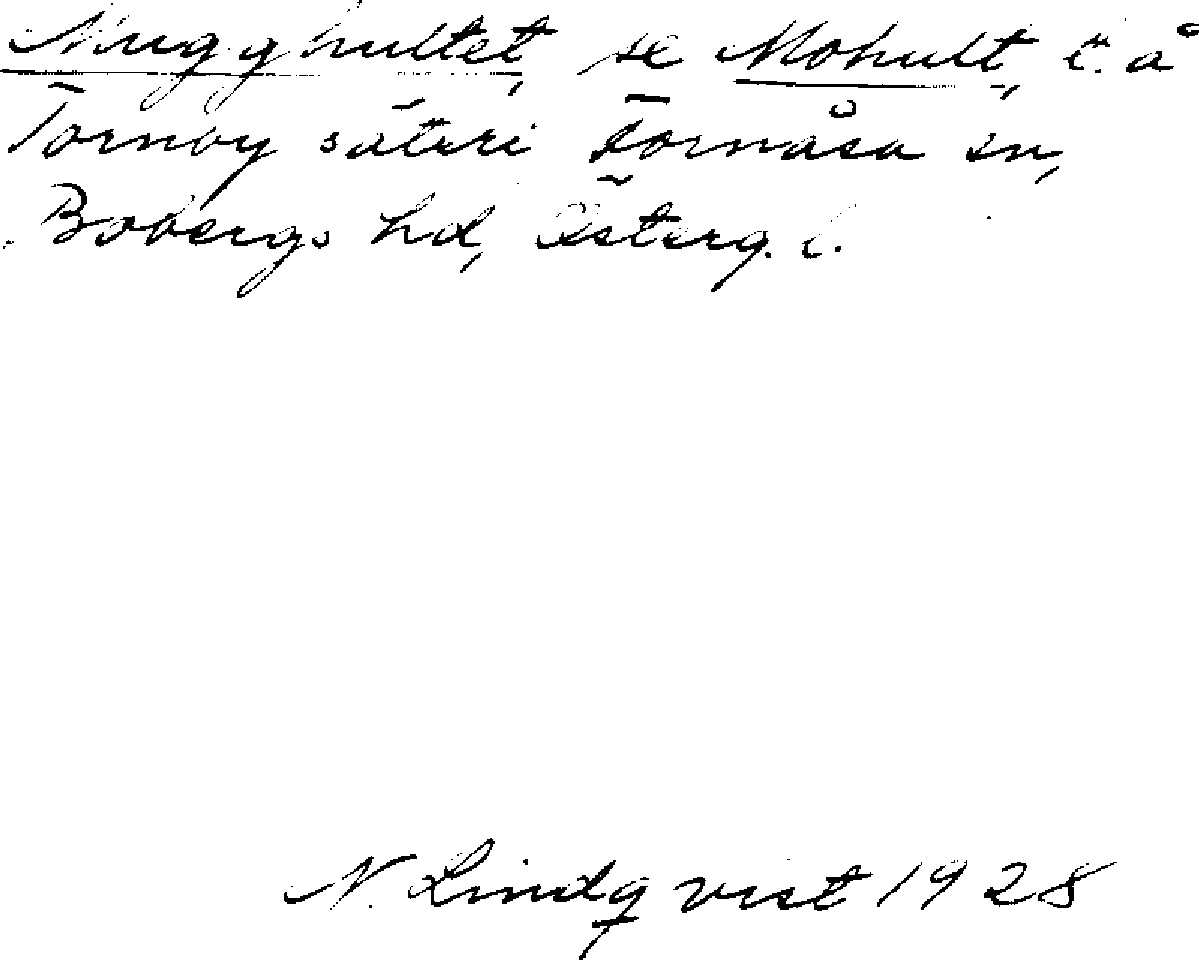 Mugghultet, se Mohult, t. å
Tornby säteri Fornåsa sn,
Bobergs hd, Österg. l.
N. Lindqvist 1928